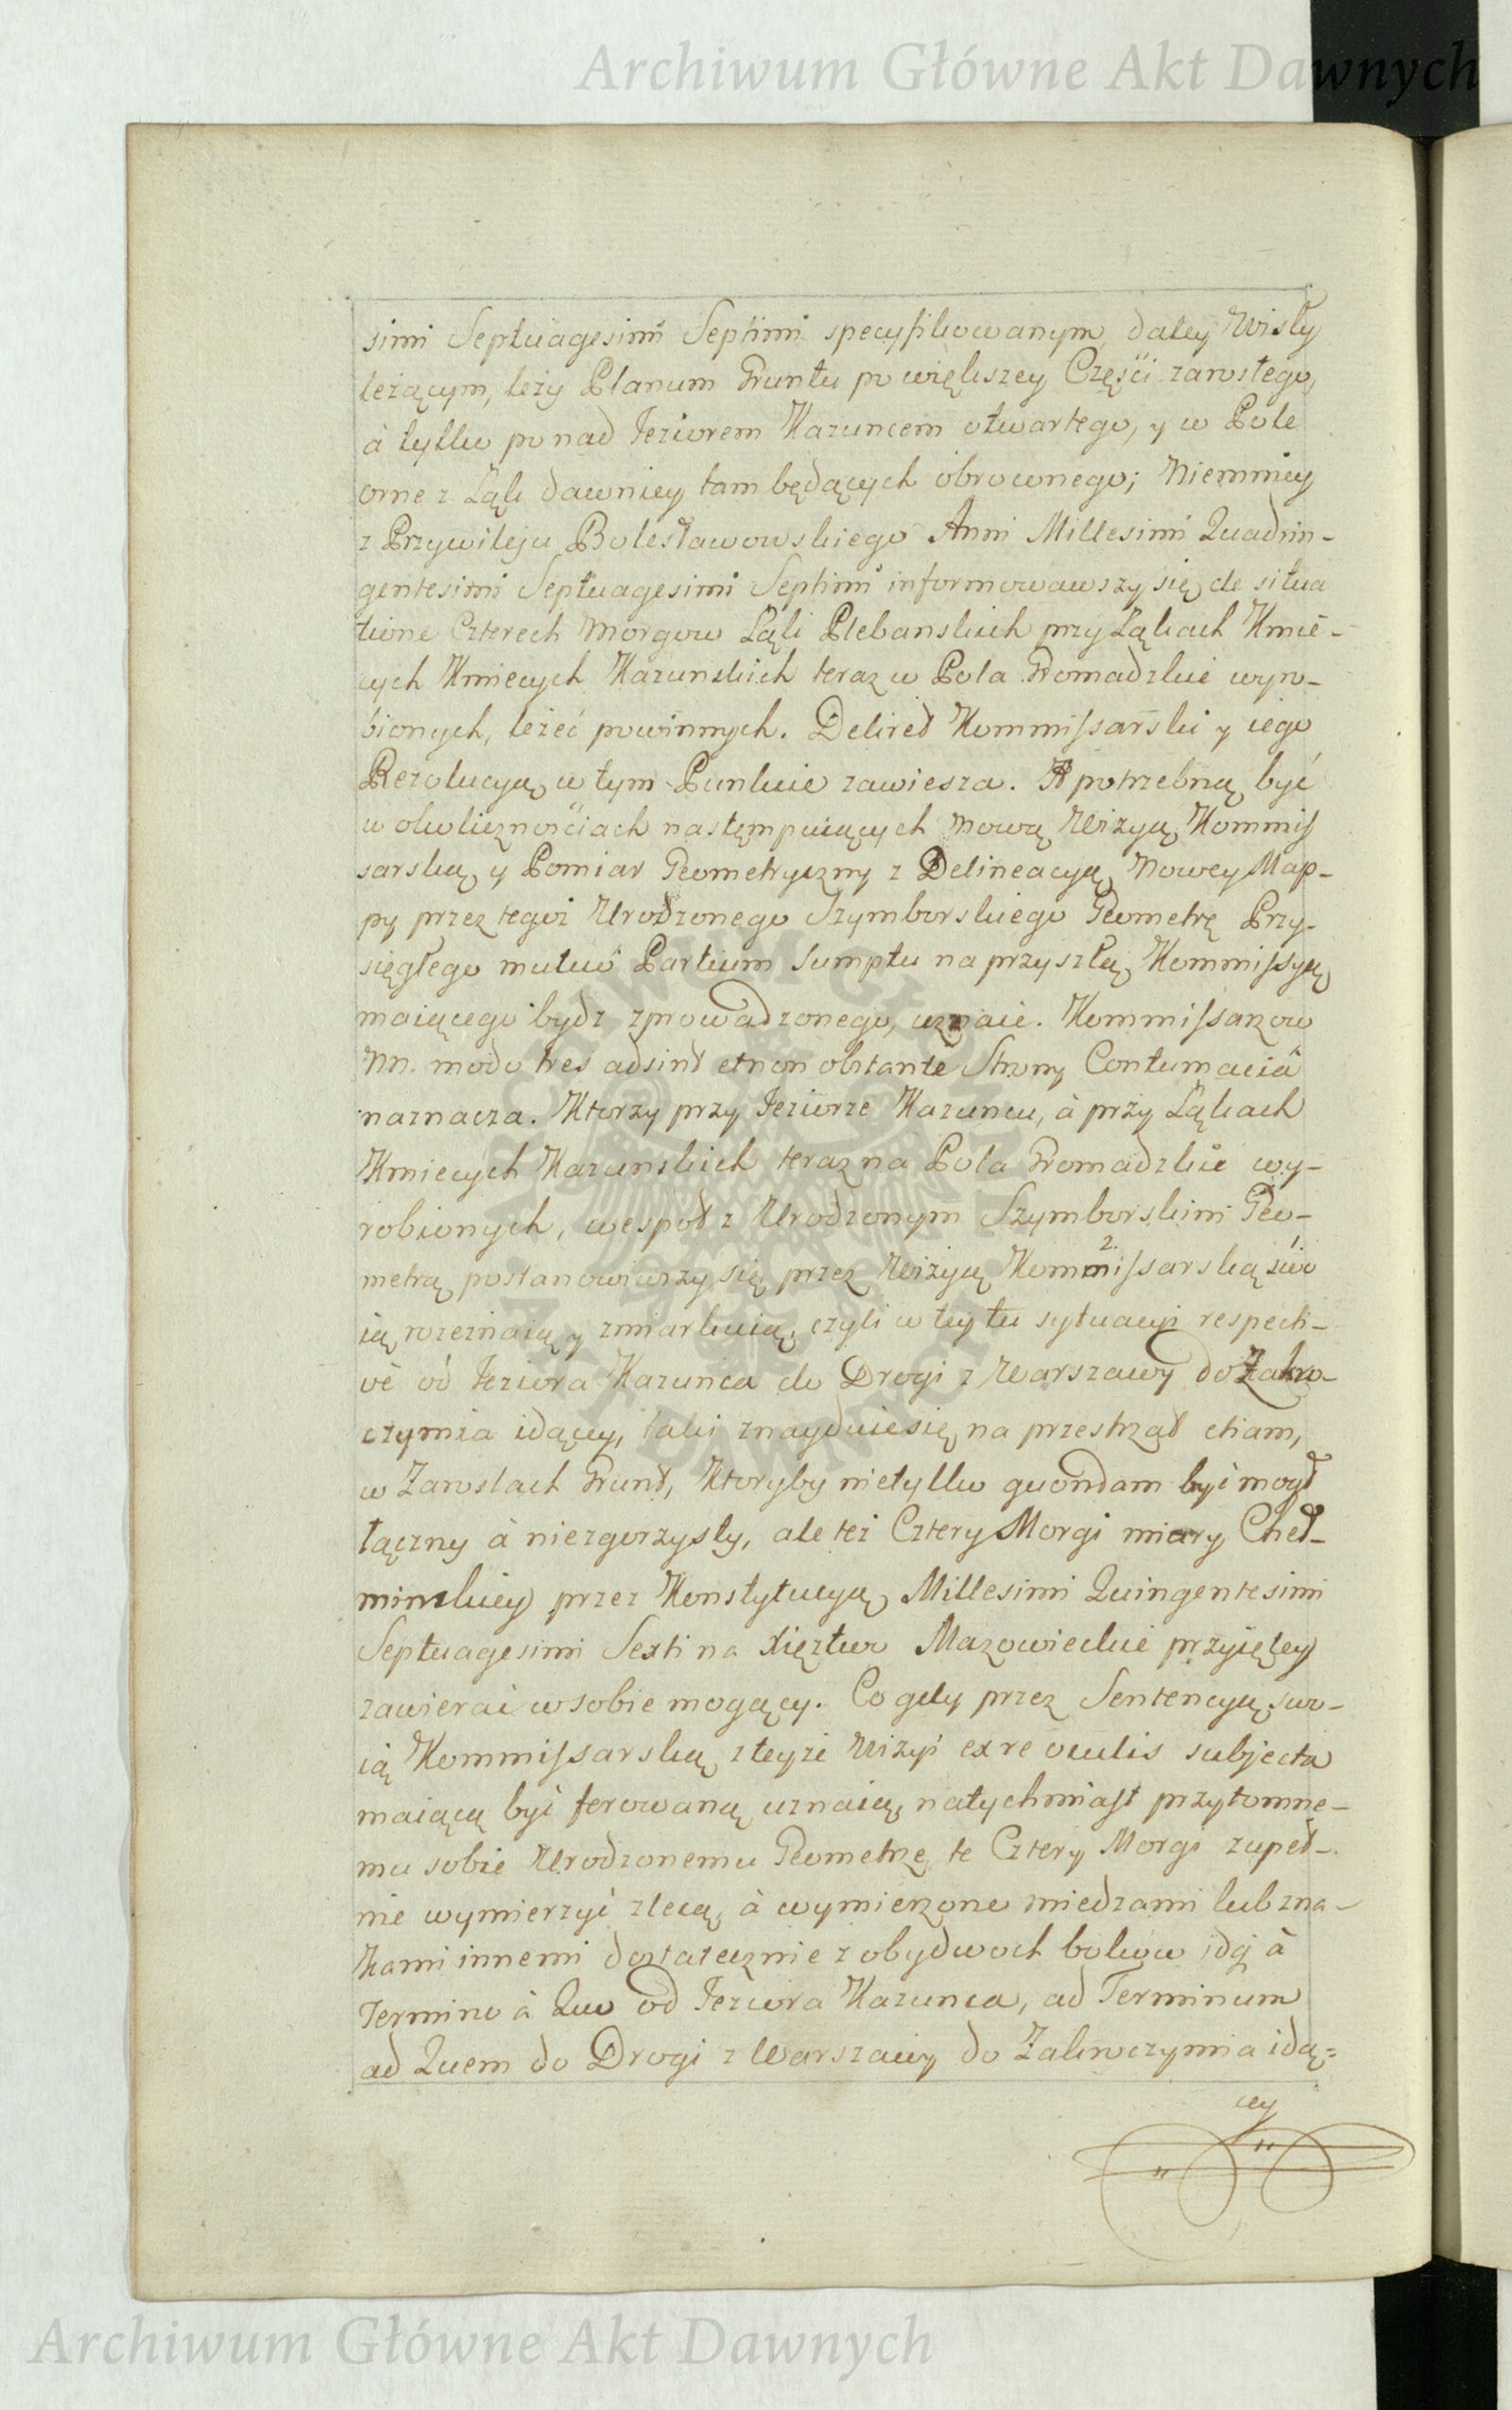 Archiwum Główne Akt Dawnych
simi Septuagesimi Septimi specyfikowanym, daley Wisły
leżącym, leży Planum Gruntu po większey Części zarosłego,
à tylko ponad Jeziorem Kazuncem otwartego, y w Pole
orne z Łąk dawniey tam będących obroconego; Niemniey
z Przywileju Bolesławowskiego Anni Millesimi Quadrin-
gentesimi Septuagesimi Septimi informowawszy się de situa
tione Czterech Morgow Łąki Plebanskich przy Łąkach Kmie-
cych Kmiecych Kazunskich teraz w Pola Gromadzkie wyro-
bionych, leżeć powinnych. Dekret Kommissarski y iego
Rezolucyą w tym Punkcie zawiesza. A potrzebną być
w okolicznościach następuiących Nową Wizyą Kommis
sarską y Pomiar Geometryczny z Delineacyą Nowey Map-
py przez tegoż Urodzonego Szymborskiego Geometrę Przy-
sięgłego mutuo Partium Sumptu na przyszłą Kommissyą
maiącego bydz zprowadzonego, uznaie. Kommissarzow
NN. modo tres adsint et non obstante Strony Contumaciâ
naznacza. Ktorzy przy Jeziorze Kazuncu, à przy Łąkach
Kmiecych Kazunskich teraz na Pola Gromadzkie wy-
robionych, wespoł z Urodzonym Szymborskim Geo-
metrą postanowiwszy się przez Wizyą Kommissarską swo
2.
ią rozeznaią y zmiarkuią, czyli w tey tu sytuacyi respecti-
vè od Jeziora Kazunca do Drogi z Warszawy do Zakro-
czymia idącey, taki znayduie się na przestrzał etiam,
w Zaroslach Grunt, Ktoryby nietylko quondam być mogł
łączny à niezgorzysty, ale też Cztery Morgi miary Cheł-
minskiey przez Konstytucyą Millesimi Quingentesimi
Septuagesimi Sexti na Xięztwo Mazowieckie przyiętey
zawierać w sobie mogący. Co gdy przez Sentencyą swo-
ią Kommissarską z teyże Wizyi ex re oculis subjecta
maiącą być ferowaną uznaią, natychmiast przytomne-
mu sobie Urodzonemu Geometrze te Cztery Morgi zupeł-
nie wymierzyć zlecą, à wymierzone miedzami lub zna-
kami innemi dostatecznie z obydwoch bokow idą à
Termino à Quo od Jeziora Kazunca, ad Terminum
ad Quem do Drogi z Warszawy do Zakroczymia idą=
cey
Archiwum Główne Akt Dawnych